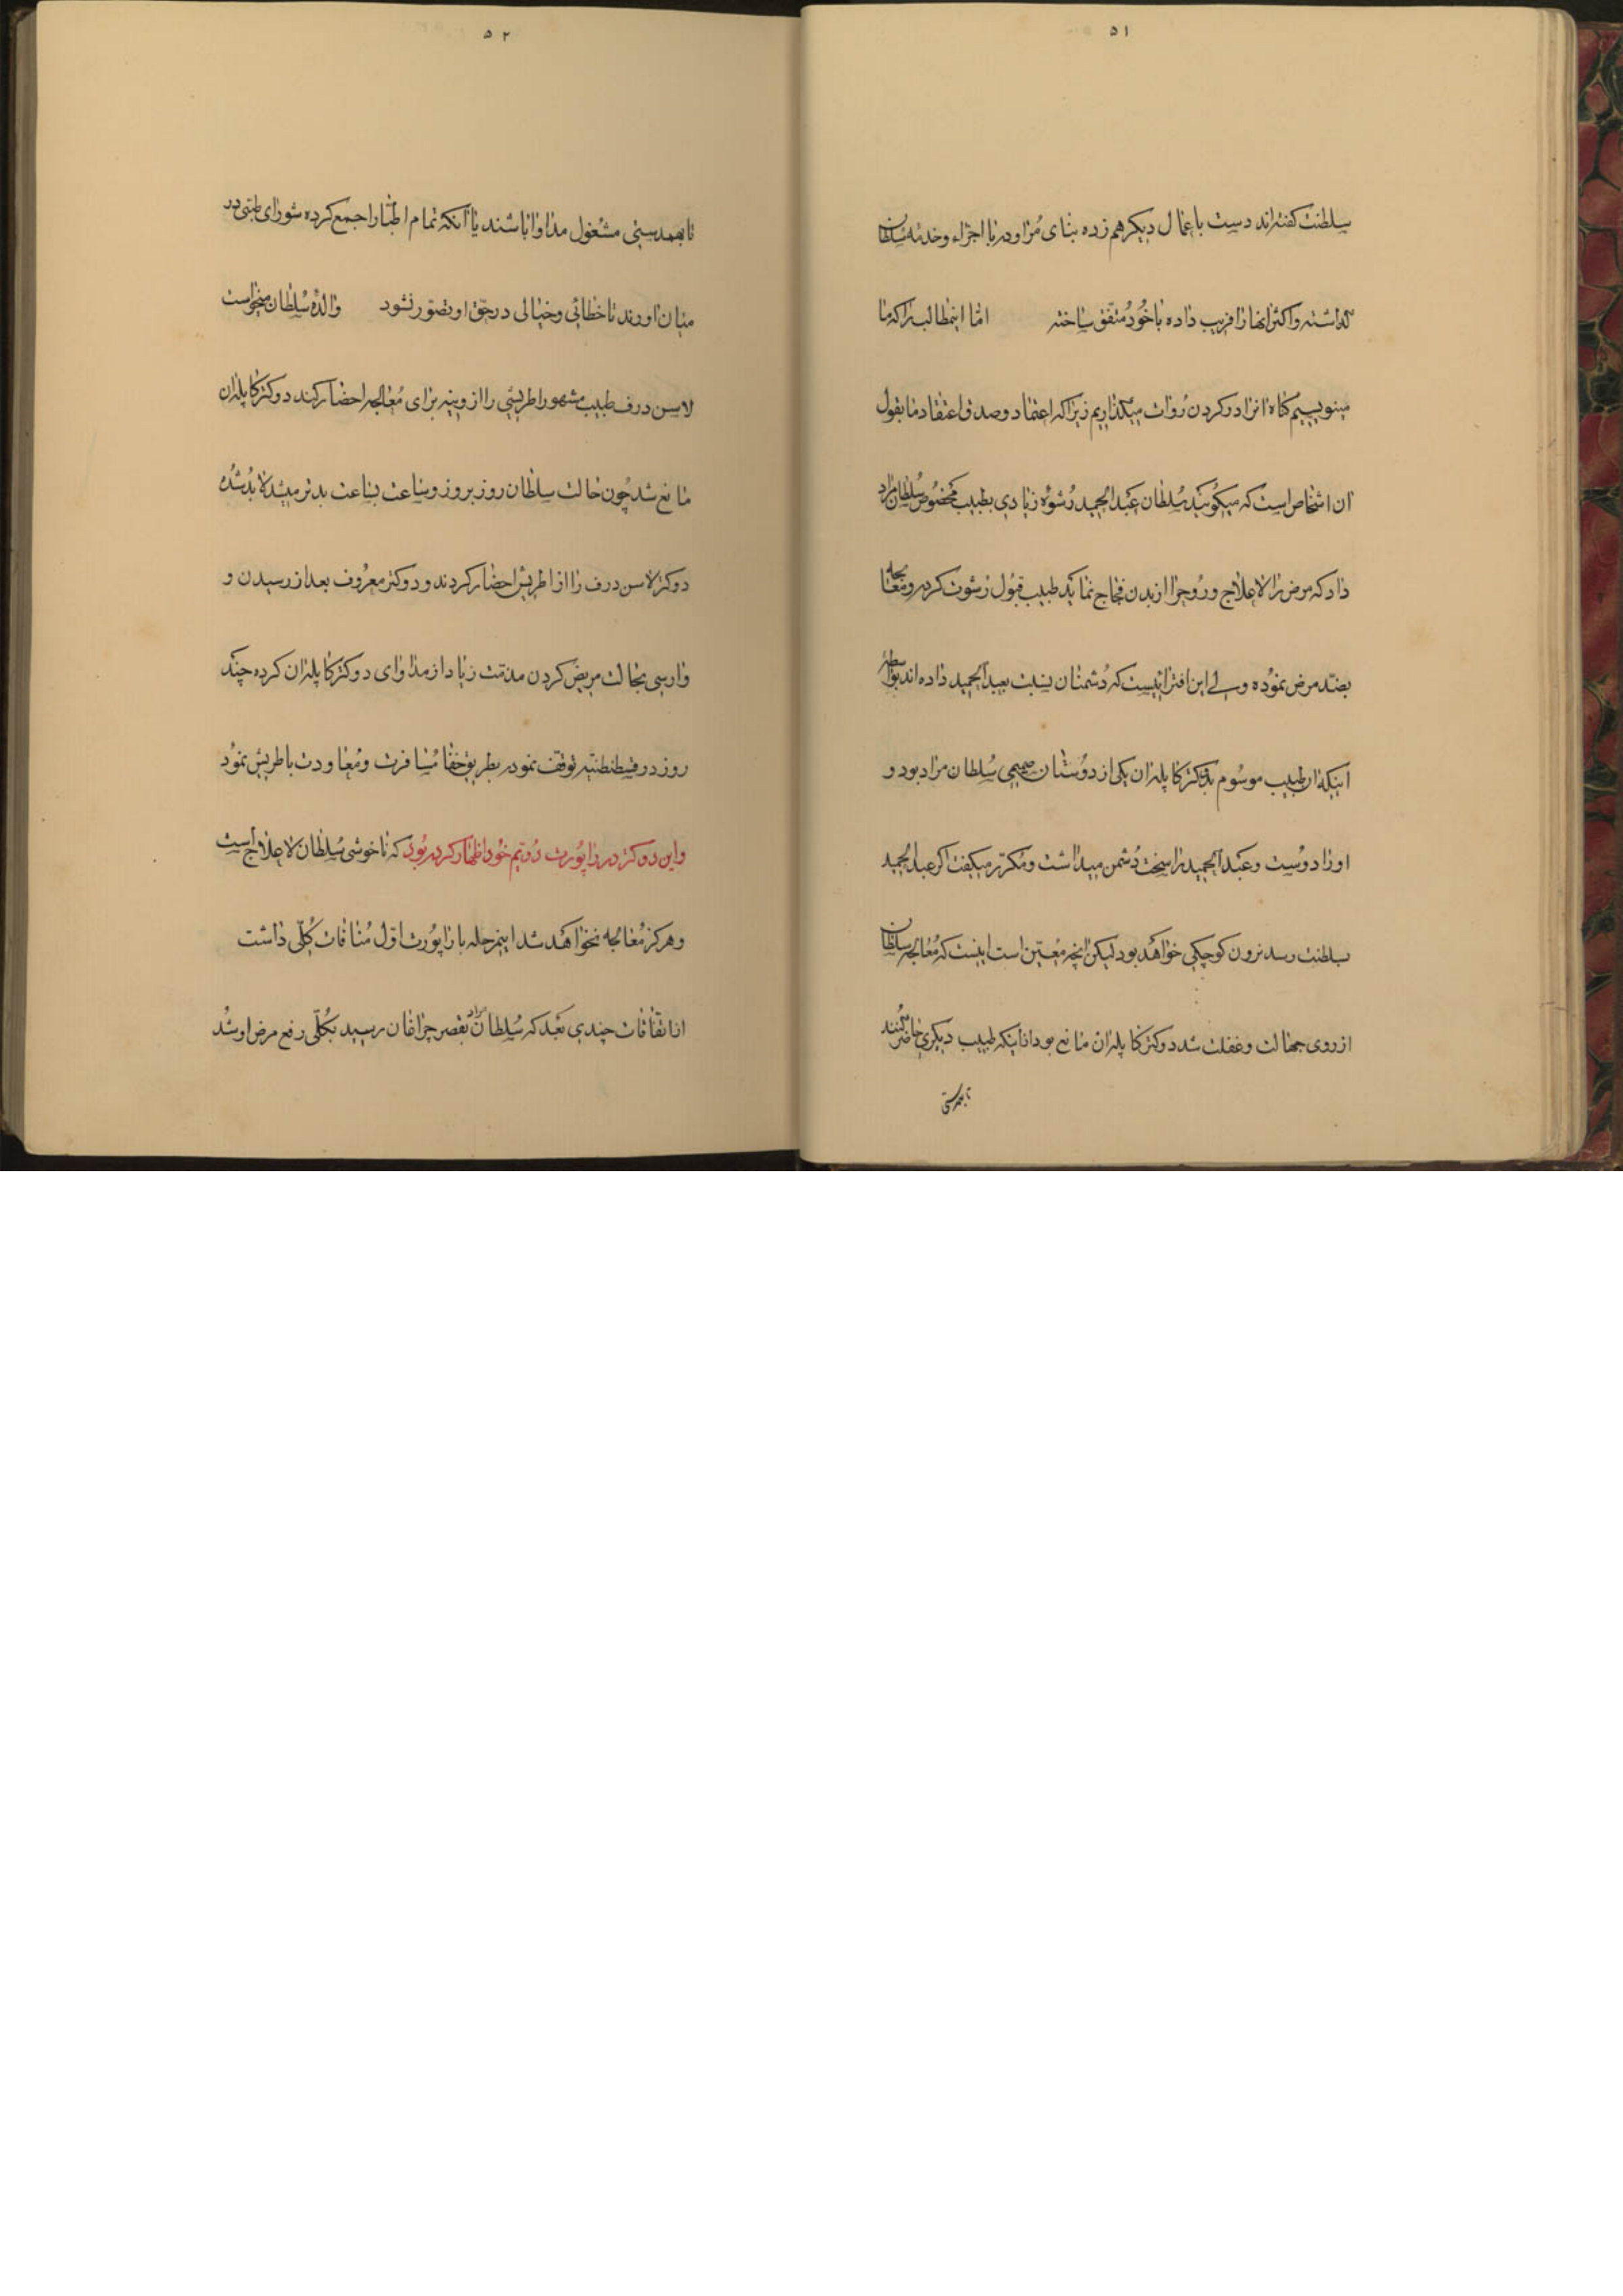 ۵۱
سلطنت گفته‌اند دست باعمال دیگر هم زده بنای مراوده با اجزاء و خدمه سلطان
گذاشته و اکثر انها را فریب داده با خود متفق ساخته اما اینمطالب را که ما
مینویسیم گناه انرا در گردن روات میگذاریم زیرا که اعتماد و صدق اعتقاد ما بقول
ان اشخاص است که میگویند سلطان عبدالحمید رشوه زیادی بطبیب مخصوص سلطان مراد
داد که مرض را لاعلاج و روح را از بدن اخراج نماید طبیب قبول رشوت کرده و معالجه
بضد مرض نموده ولی این افترائیست که دشمنان نسبت بعبدالحمید داده اند بواسطه
اینکه ان طبیب موسوم بدوکتر کاپلران یکی از دوستان صمیمی سلطان مراد بود و
او را دوست و عبدالحمید را سخت دشمن میداشت و مکرر میگفت اگر عبدالحمید
بسلطنت رسد نرون کوچکی خواهد بود لیکن انچه معین است اینست که معالجه سلطان
از روی جهالت و غفلت شد دوکتر کاپلران مانع بود از اینکه طبیب دیگری حاضر کنند
تا بهمدستی
۵۲
تا بهمدستی مشغول مداوا باشند یا آنکه تمام اطبا را جمع کرده شورای طبی در
میان اورند تا خطائی و خیالی در حق او تصور نشود والده سلطان میخواست
لاسن درف طبیب مشهور اطریشی را از وینه برای معالجه احضار کند دوکتر کاپلران
مانع شد چون حالت سلطان روز بروز و ساعت بساعت بدتر میشد لابد شده
دوکتر لاسن درف را از اطریش احضار کردند و دوکتر معروف بعد از رسیدن و
وارسی بحالت مریض کردن مذمت زیاد از مداوای دوکتر کاپلران کرده چند
روز در قسطنطنیه توقف نموده بطریق خفا مسافرت و معاودت باطریش نمود
و این دوکتر در راپورت دویم خود اظهار کرده بود که ناخوشی سلطان لاعلاج است
و هرگز معالجه نخواهد شد اینمرحله با راپورت اول منافات کلی داشت
از اتفاقات چندی بعد که سلطان مراد بقصر چراغان رسید بکلی رفع مرض او شد